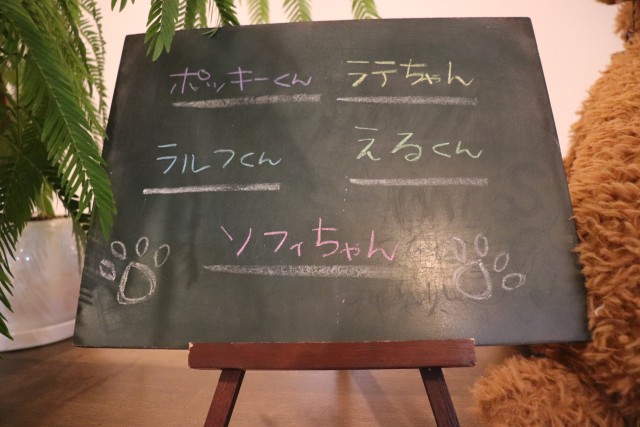 ポッキーくん ラテちゃん
ラルフくん えるくん
ソフィちゃん